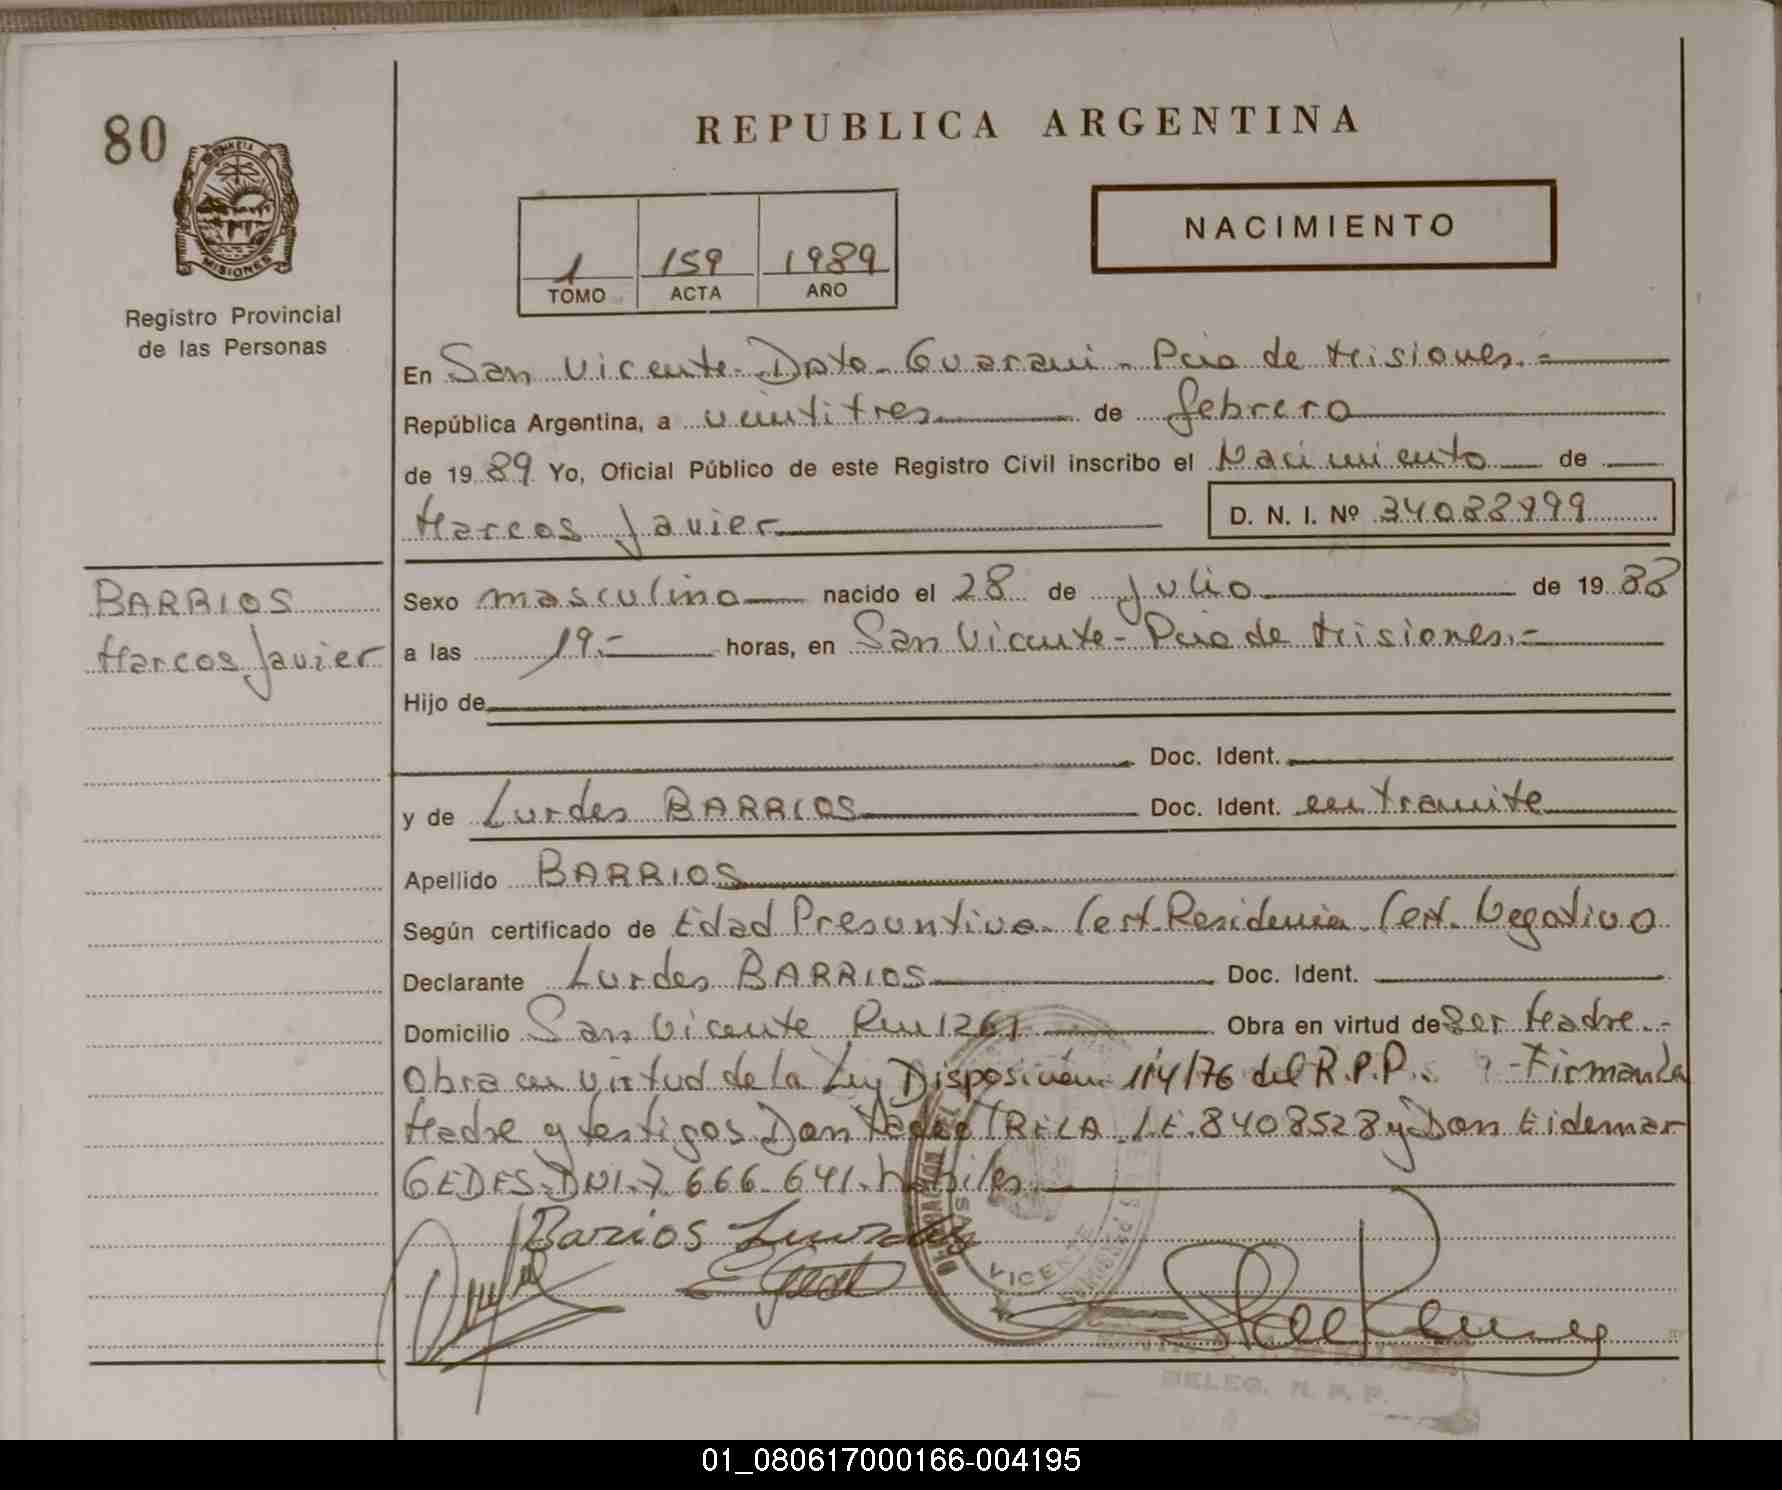 80
REPUBLICA ARGENTINA
MISIONES
Registro Provincial
de las Personas
1 159 1989
TOMO ACTA AÑO
NACIMIENTO
En San Vicente - Dpto. Guarani - Pcia de Misiones.=
República Argentina, a veintitres de febrero
de 1989 Yo, Oficial Público de este Registro Civil inscribo el Nacimiento de
Marcos Javier D. N. I. Nº
BARRIOS
Marcos Javier
Sexo masculino nacido el 28 de Julio de 1988
a las 19.- horas, en San Vicente - Pcia de Misiones.-
Hijo de
Doc. Ident.
y de Lurdes BARRIOS Doc. Ident. en tramite
Apellido BARRIOS
Según certificado de Edad Presuntiva. Cert. Residencia. Cert. Negativo
Declarante Lurdes BARRIOS Doc. Ident.
Domicilio San Vicente Rm 1261 Obra en virtud de Ser Madre.-
Obra en virtud de la Ley Disposición 114/76 del R.P.P. Firman la
Madre y testigos Don L.E. 8408528 y Don Eidemar
GEDES. DNI. 7.666.641. habiles
Barios
VICENTE
DELEG. R. P. P.
01_080617000166-004195